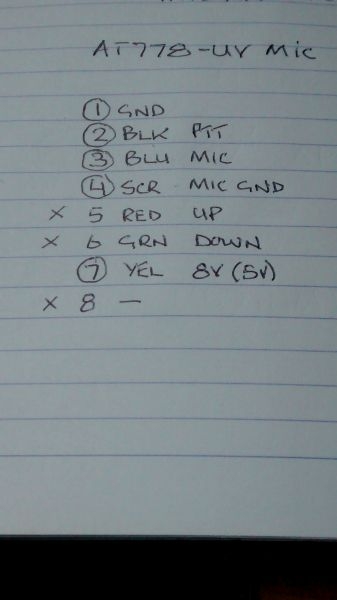 AT778-UV MIC
① GND
② BLK PTT
③ BLU MIC
④ SCR MIC GND
× 5 RED UP
× 6 GRN DOWN
⑦ YEL 8V (5V)
× 8 —